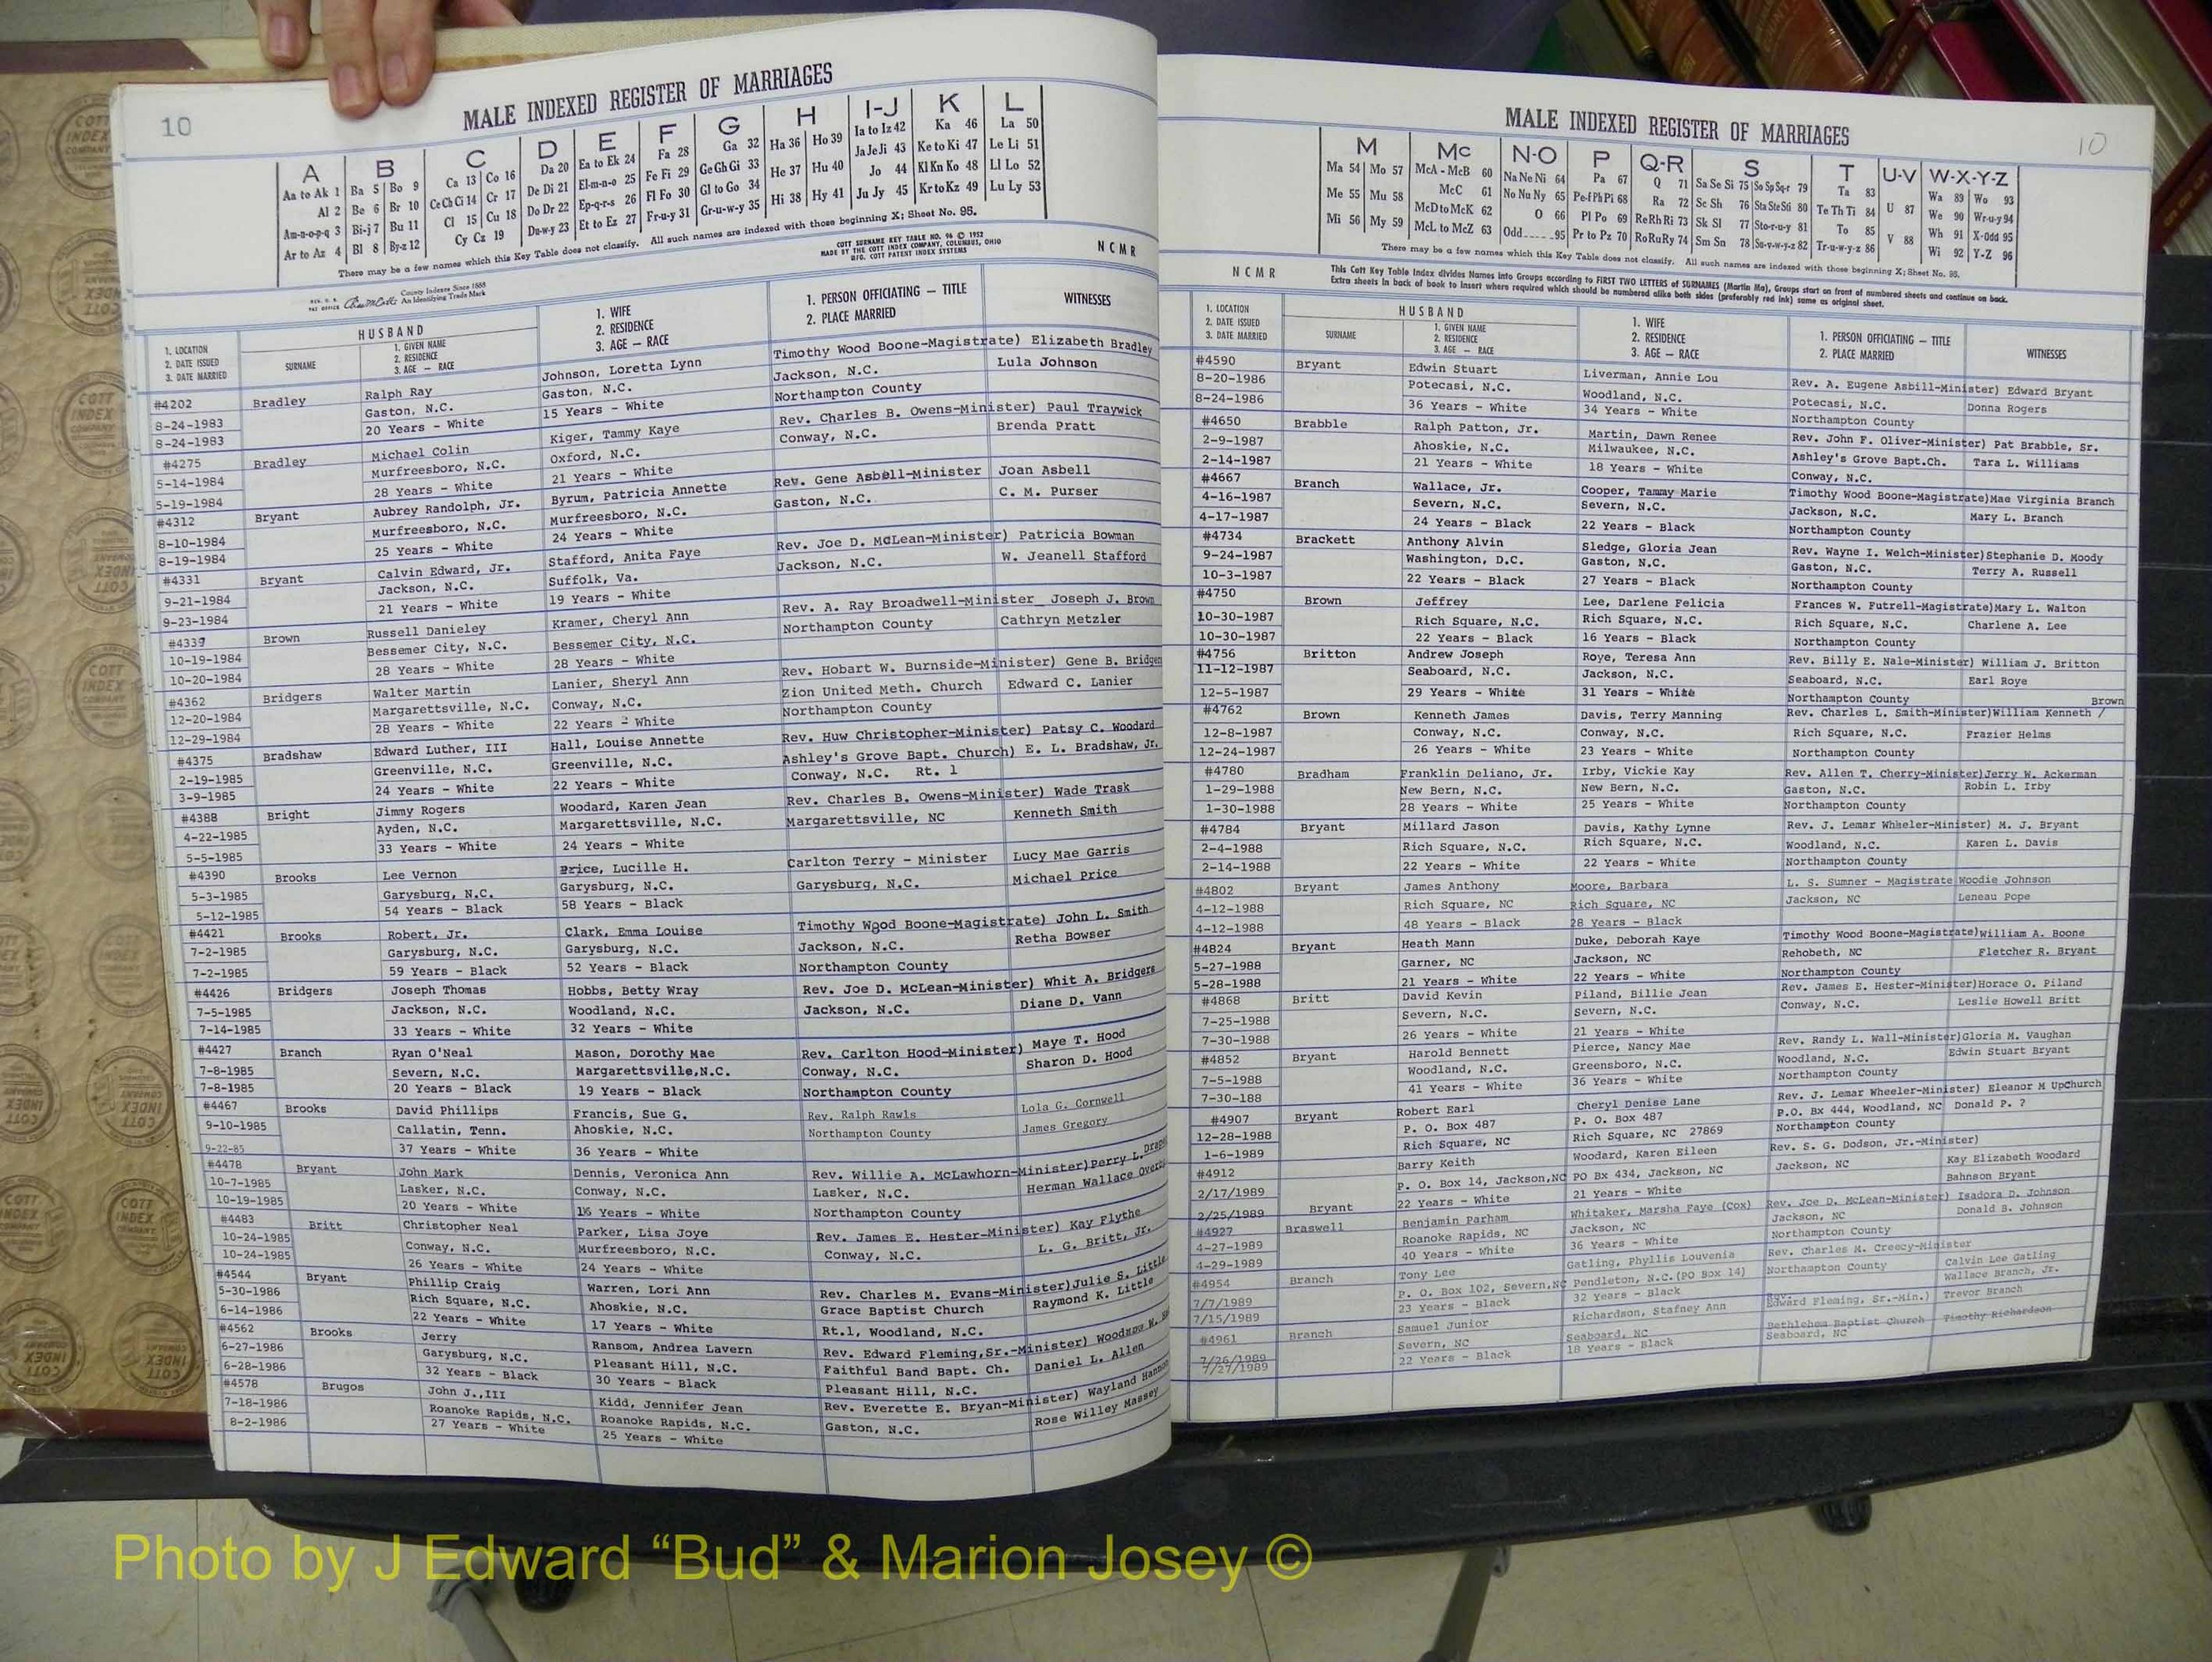 10
MALE INDEXED REGISTER OF MARRIAGES
A B C D E F G H I-J K L
Aa to Ak 1 Ba 5 Bo 9 Ca 13 Co 16 Da 20 Ea to Ek 24 Fa 28 Ga 32 Ha 36 Ho 39 Ia to Iz 42 Ka 46 La 50
Al 2 Be 6 Br 10 Ce Ch Ci 14 Cr 17 De Di 21 El-m-n-o 25 Fe Fi 29 Ge Gh Gi 33 He 37 Hu 40 Ja Je Ji 43 Ke to Ki 47 Le Li 51
Am-n-o-p-q 3 Bi-j 7 Bu 11 Cl 15 Cu 18 Do Dr 22 Ep-q-r-s 26 Fl Fo 30 Gl to Go 34 Hi 38 Hy 41 Jo 44 Kl Kn Ko 48 Ll Lo 52
Ar to Az 4 Bl 8 By-z 12 Cy Cz 19 Du-w-y 23 Et to Ez 27 Fr-u-y 31 Gr-u-w-y 35 Ju Jy 45 Kr to Kz 49 Lu Ly 53
There may be a few names which this Key Table does not classify. All such names are indexed with those beginning X; Sheet No. 95.
COTT SURNAME KEY TABLE NO. 96 © 1952
MADE BY THE COTT INDEX COMPANY, COLUMBUS, OHIO
MFG. COTT PATENT INDEX SYSTEMS
N C M R
County Indexes Since 1888
An Identifying Trade Mark
1. LOCATION
2. DATE ISSUED
3. DATE MARRIED
HUSBAND
SURNAME
1. GIVEN NAME
2. RESIDENCE
3. AGE — RACE
1. WIFE
2. RESIDENCE
3. AGE — RACE
1. PERSON OFFICIATING — TITLE
2. PLACE MARRIED
WITNESSES
#4202 Bradley Ralph Ray Johnson, Loretta Lynn Timothy Wood Boone-Magistrate) Elizabeth Bradley
8-24-1983 Gaston, N.C. Gaston, N.C. Jackson, N.C. Lula Johnson
8-24-1983 20 Years - White 15 Years - White Northampton County
#4275 Bradley Michael Colin Kiger, Tammy Kaye Rev. Charles B. Owens-Minister) Paul Traywick
5-14-1984 Murfreesboro, N.C. Oxford, N.C. Conway, N.C. Brenda Pratt
5-19-1984 28 Years - White 21 Years - White
#4312 Bryant Aubrey Randolph, Jr. Byrum, Patricia Annette Rev. Gene Asbell-Minister Joan Asbell
8-10-1984 Murfreesboro, N.C. Murfreesboro, N.C. Gaston, N.C. C. M. Purser
8-19-1984 25 Years - White 24 Years - White
#4331 Bryant Calvin Edward, Jr. Stafford, Anita Faye Rev. Joe D. McLean-Minister) Patricia Bowman
9-21-1984 Jackson, N.C. Suffolk, Va. Jackson, N.C. W. Jeanell Stafford
9-23-1984 21 Years - White 19 Years - White
#4339 Brown Russell Danieley Kramer, Cheryl Ann Rev. A. Ray Broadwell-Minister Joseph J. Brown
10-19-1984 Bessemer City, N.C. Bessemer City, N.C. Northampton County Cathryn Metzler
10-20-1984 28 Years - White 28 Years - White
#4362 Bridgers Walter Martin Lanier, Sheryl Ann Rev. Hobart W. Burnside-Minister) Gene B. Bridgers
12-20-1984 Margarettsville, N.C. Conway, N.C. Zion United Meth. Church Edward C. Lanier
12-29-1984 28 Years - White 22 Years - White Northampton County
#4375 Bradshaw Edward Luther, III Hall, Louise Annette Rev. Huw Christopher-Minister) Patsy C. Woodard
2-19-1985 Greenville, N.C. Greenville, N.C. Ashley's Grove Bapt. Church) E. L. Bradshaw, Jr.
3-9-1985 24 Years - White 22 Years - White Conway, N.C. Rt. 1
#4388 Bright Jimmy Rogers Woodard, Karen Jean Rev. Charles B. Owens-Minister) Wade Trask
4-22-1985 Ayden, N.C. Margarettsville, N.C. Margarettsville, NC Kenneth Smith
5-5-1985 33 Years - White 24 Years - White
#4390 Brooks Lee Vernon Price, Lucille H. Carlton Terry - Minister Lucy Mae Garris
5-3-1985 Garysburg, N.C. Garysburg, N.C. Garysburg, N.C. Michael Price
5-12-1985 54 Years - Black 58 Years - Black
#4421 Brooks Robert, Jr. Clark, Emma Louise Timothy Wood Boone-Magistrate) John L. Smith
7-2-1985 Garysburg, N.C. Garysburg, N.C. Jackson, N.C. Retha Bowser
7-2-1985 59 Years - Black 52 Years - Black Northampton County
#4426 Bridgers Joseph Thomas Hobbs, Betty Wray Rev. Joe D. McLean-Minister) Whit A. Bridgers
7-5-1985 Jackson, N.C. Woodland, N.C. Jackson, N.C. Diane D. Vann
7-14-1985 33 Years - White 32 Years - White
#4427 Branch Ryan O'Neal Mason, Dorothy Mae Rev. Carlton Hood-Minister) Maye T. Hood
7-8-1985 Severn, N.C. Margarettsville,N.C. Conway, N.C. Sharon D. Hood
7-8-1985 20 Years - Black 19 Years - Black Northampton County
#4467 Brooks David Phillips Francis, Sue G. Rev. Ralph Rawls Lola G. Cornwell
9-10-1985 Callatin, Tenn. Ahoskie, N.C. Northampton County James Gregory
9-22-85 37 Years - White 36 Years - White
#4478 Bryant John Mark Dennis, Veronica Ann Rev. Willie A. McLawhorn-Minister)Perry L.
10-7-1985 Lasker, N.C. Conway, N.C. Lasker, N.C. Herman Wallace
10-19-1985 20 Years - White 16 Years - White Northampton County
#4483 Britt Christopher Neal Parker, Lisa Joye Rev. James E. Hester-Minister) Kay Flythe
10-24-1985 Conway, N.C. Murfreesboro, N.C. Conway, N.C. L. G. Britt, Jr.
10-24-1985 26 Years - White 24 Years - White
#4544 Bryant Phillip Craig Warren, Lori Ann Rev. Charles M. Evans-Minister)Julie S. Little
5-30-1986 Rich Square, N.C. Ahoskie, N.C. Grace Baptist Church Raymond K. Little
6-14-1986 22 Years - White 17 Years - White Rt.1, Woodland, N.C.
#4562 Brooks Jerry Ransom, Andrea Lavern Rev. Edward Fleming,Sr.-Minister)
6-27-1986 Garysburg, N.C. Pleasant Hill, N.C. Faithful Band Bapt. Ch. Daniel L. Allen
6-28-1986 32 Years - Black 30 Years - Black Pleasant Hill, N.C.
#4578 Brugos John J.,III Kidd, Jennifer Jean Rev. Everette E. Bryan-Minister) Wayland
7-18-1986 Roanoke Rapids, N.C. Roanoke Rapids, N.C. Gaston, N.C. Rose Willey Massey
8-2-1986 27 Years - White 25 Years - White
MALE INDEXED REGISTER OF MARRIAGES
10
M Mc N-O P Q-R S T U-V W-X-Y-Z
Ma 54 Mo 57 McA - McB 60 Na Ne Ni 64 Pa 67 Q 71 Sa Se Si 75 So Sp Sq-r 79 Ta 83 U 87 Wa 89 Wo 93
Me 55 Mu 58 McC 61 No Nu Ny 65 Pe-f Ph Pi 68 Ra 72 Sc Sh 76 Sta Ste Sti 80 Te Th Ti 84 V 88 We 90 Wr-u-y 94
Mi 56 My 59 McD to McK 62 O 66 Pl Po 69 Re Rh Ri 73 Sk Sl 77 Sto-r-u-y 81 To 85 Wh 91 X-Odd 95
McL to McZ 63 Odd 95 Pr to Pz 70 Ro Ru Ry 74 Sm Sn 78 Su-v-w-y-z 82 Tr-u-w-y-z 86 Wi 92 Y-Z 96
There may be a few names which this Key Table does not classify. All such names are indexed with those beginning X; Sheet No. 95.
N C M R
This Cott Key Table Index divides Names into Groups according to FIRST TWO LETTERS of SURNAMES (Martin Ma), Groups start on front of numbered sheets and continue on back.
Extra sheets in back of book to insert where required which should be numbered alike both sides (preferably red ink) same as original sheet.
1. LOCATION
2. DATE ISSUED
3. DATE MARRIED
HUSBAND
SURNAME
1. GIVEN NAME
2. RESIDENCE
3. AGE — RACE
1. WIFE
2. RESIDENCE
3. AGE — RACE
1. PERSON OFFICIATING — TITLE
2. PLACE MARRIED
WITNESSES
#4590 Bryant Edwin Stuart Liverman, Annie Lou Rev. A. Eugene Asbill-Minister) Edward Bryant
8-20-1986 Potecasi, N.C. Woodland, N.C. Potecasi, N.C. Donna Rogers
8-24-1986 36 Years - White 34 Years - White Northampton County
#4650 Brabble Ralph Patton, Jr. Martin, Dawn Renee Rev. John F. Oliver-Minister) Pat Brabble, Sr.
2-9-1987 Ahoskie, N.C. Milwaukee, N.C. Ashley's Grove Bapt.Ch. Tara L. Williams
2-14-1987 21 Years - White 18 Years - White Conway, N.C.
#4667 Branch Wallace, Jr. Cooper, Tammy Marie Timothy Wood Boone-Magistrate)Mae Virginia Branch
4-16-1987 Severn, N.C. Severn, N.C. Jackson, N.C. Mary L. Branch
4-17-1987 24 Years - Black 22 Years - Black Northampton County
#4734 Brackett Anthony Alvin Sledge, Gloria Jean Rev. Wayne I. Welch-Minister)Stephanie D. Moody
9-24-1987 Washington, D.C. Gaston, N.C. Gaston, N.C. Terry A. Russell
10-3-1987 22 Years - Black 27 Years - Black Northampton County
#4750 Brown Jeffrey Lee, Darlene Felicia Frances W. Futrell-Magistrate)Mary L. Walton
10-30-1987 Rich Square, N.C. Rich Square, N.C. Rich Square, N.C. Charlene A. Lee
10-30-1987 22 Years - Black 16 Years - Black Northampton County
#4756 Britton Andrew Joseph Roye, Teresa Ann Rev. Billy E. Nale-Minister) William J. Britton
11-12-1987 Seaboard, N.C. Jackson, N.C. Seaboard, N.C. Earl Roye
12-5-1987 29 Years - White 31 Years - White Northampton County
#4762 Brown Kenneth James Davis, Terry Manning Rev. Charles L. Smith-Minister)William Kenneth / Brown
12-8-1987 Conway, N.C. Conway, N.C. Rich Square, N.C. Frazier Helms
12-24-1987 26 Years - White 23 Years - White Northampton County
#4780 Bradham Franklin Deliano, Jr. Irby, Vickie Kay Rev. Allen T. Cherry-Minister)Jerry W. Ackerman
1-29-1988 New Bern, N.C. New Bern, N.C. Gaston, N.C. Robin L. Irby
1-30-1988 28 Years - White 25 Years - White Northampton County
#4784 Bryant Millard Jason Davis, Kathy Lynne Rev. J. Lemar Wheeler-Minister) M. J. Bryant
2-4-1988 Rich Square, N.C. Rich Square, N.C. Woodland, N.C. Karen L. Davis
2-14-1988 22 Years - White 22 Years - White Northampton County
#4802 Bryant James Anthony Moore, Barbara L. S. Sumner - Magistrate Woodie Johnson
4-12-1988 Rich Square, NC Rich Square, NC Jackson, NC Leneau Pope
4-12-1988 48 Years - Black 28 Years - Black
#4824 Bryant Heath Mann Duke, Deborah Kaye Timothy Wood Boone-Magistrate)William A. Boone
5-27-1988 Garner, NC Jackson, NC Rehobeth, NC Fletcher R. Bryant
5-28-1988 21 Years - White 22 Years - White Northampton County
#4868 Britt David Kevin Piland, Billie Jean Rev. James E. Hester-Minister)Horace O. Piland
7-25-1988 Severn, N.C. Severn, N.C. Conway, N.C. Leslie Howell Britt
7-30-1988 26 Years - White 21 Years - White
#4852 Bryant Harold Bennett Pierce, Nancy Mae Rev. Randy L. Wall-Minister)Gloria M. Vaughan
7-5-1988 Woodland, N.C. Greensboro, N.C. Woodland, N.C. Edwin Stuart Bryant
7-30-188 41 Years - White 36 Years - White Northampton County
#4907 Bryant Robert Earl Cheryl Denise Lane Rev. J. Lemar Wheeler-Minister) Eleanor M UpChurch
12-28-1988 P. O. Box 487 P. O. Box 487 P.O. Bx 444, Woodland, NC Donald P. ?
1-6-1989 Rich Square, NC Rich Square, NC 27869 Northampton County
#4912 Bryant Barry Keith Woodard, Karen Eileen Rev. S. G. Dodson, Jr.-Minister)
2/17/1989 P. O. Box 14, Jackson,NC PO Bx 434, Jackson, NC Jackson, NC Kay Elizabeth Woodard
2/25/1989 22 Years - White 21 Years - White Bahnson Bryant
#4927 Braswell Benjamin Parham Whitaker, Marsha Faye (Cox) Rev. Joe D. McLean-Minister) Isadora D. Johnson
4-27-1989 Roanoke Rapids, NC Jackson, NC Jackson, NC Donald B. Johnson
4-29-1989 40 Years - White 36 Years - White Northampton County
#4954 Branch Tony Lee Gatling, Phyllis Louvenia Rev. Charles M. Creecy-Minister
7/7/1989 P. O. Box 102, Severn,NC Pendleton, N.C.(PO Box 14) Northampton County Calvin Lee Gatling
7/15/1989 23 Years - Black 32 Years - Black Wallace Branch, Jr.
#4961 Branch Samuel Junior Richardson, Stafney Ann Rev. Edward Fleming, Sr.-Min.) Trevor Branch
7/26/1989 Severn, NC Seaboard, NC Bethlehem Baptist Church Timothy Richardson
7/27/1989 22 Years - Black 18 Years - Black Seaboard, NC
Photo by J Edward “Bud” & Marion Josey ©